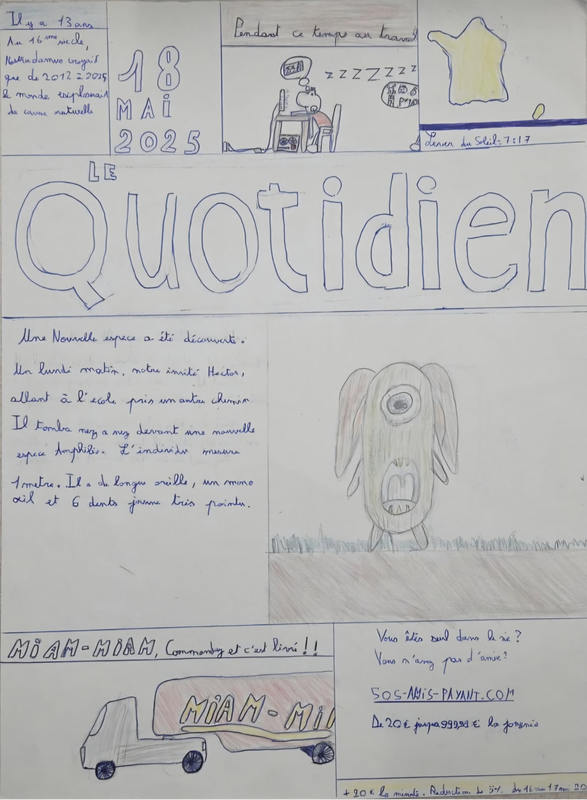 Il y a 13 ans
Au 16ème siècle,
Nostradamus croyait
que de 2012 à 2025
le monde exploserait
de cause naturelle
18
MAI
2025
Pendant ce temps au travail
zZZZZzzz
Lever du Soleil: 7:17
LE
Quotidien
Une Nouvelle espece a été découverte.
Un lundi matin, notre invité Hector,
allant à l'ecole pris un autre chemin
Il tomba nez a nez devant une nouvelle
espece Amphibie. L'individu mesure
1 metre. Il a de longue oreille, un mono
œil et 6 dents jaune très pointu.
MIAM-MIAM, Commandez et c'est livré!!
MIAM-MI
Vous êtes seul dans la vie?
Vous n'avez pas d'amie?
SOS-AMIS-PAYANT.COM
De 20€ jusqu'a 999,99€ la journée
+20€ la minute. Reduction de 5% du 16 au 17 mai 20